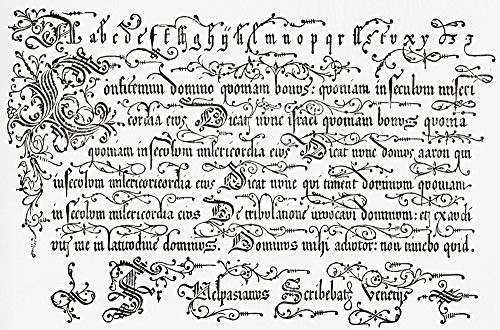 A a b c d e f g h k l m n o p q r s t v x y
Confitemini domino qvoniam bonvs: qvoniam in secvlvm miseri
cordia eivs Dicat nvnc israel qvoniam bonvs qvonia
qvoniam in secvlvm misericordia eivs Dicat nvnc domvs aaron qui
in secvlvm misericordia eivs Dicat nvnc qui timent dominvm qvoniam
in secvlvm misericordia eivs De tribvlatione invocavi dominvm: et exavdi
vit me in latitvdine dominvs. Dominvs mihi adivtor: non timebo quid.
Fr Vespasianvs Scribebat Venetiis